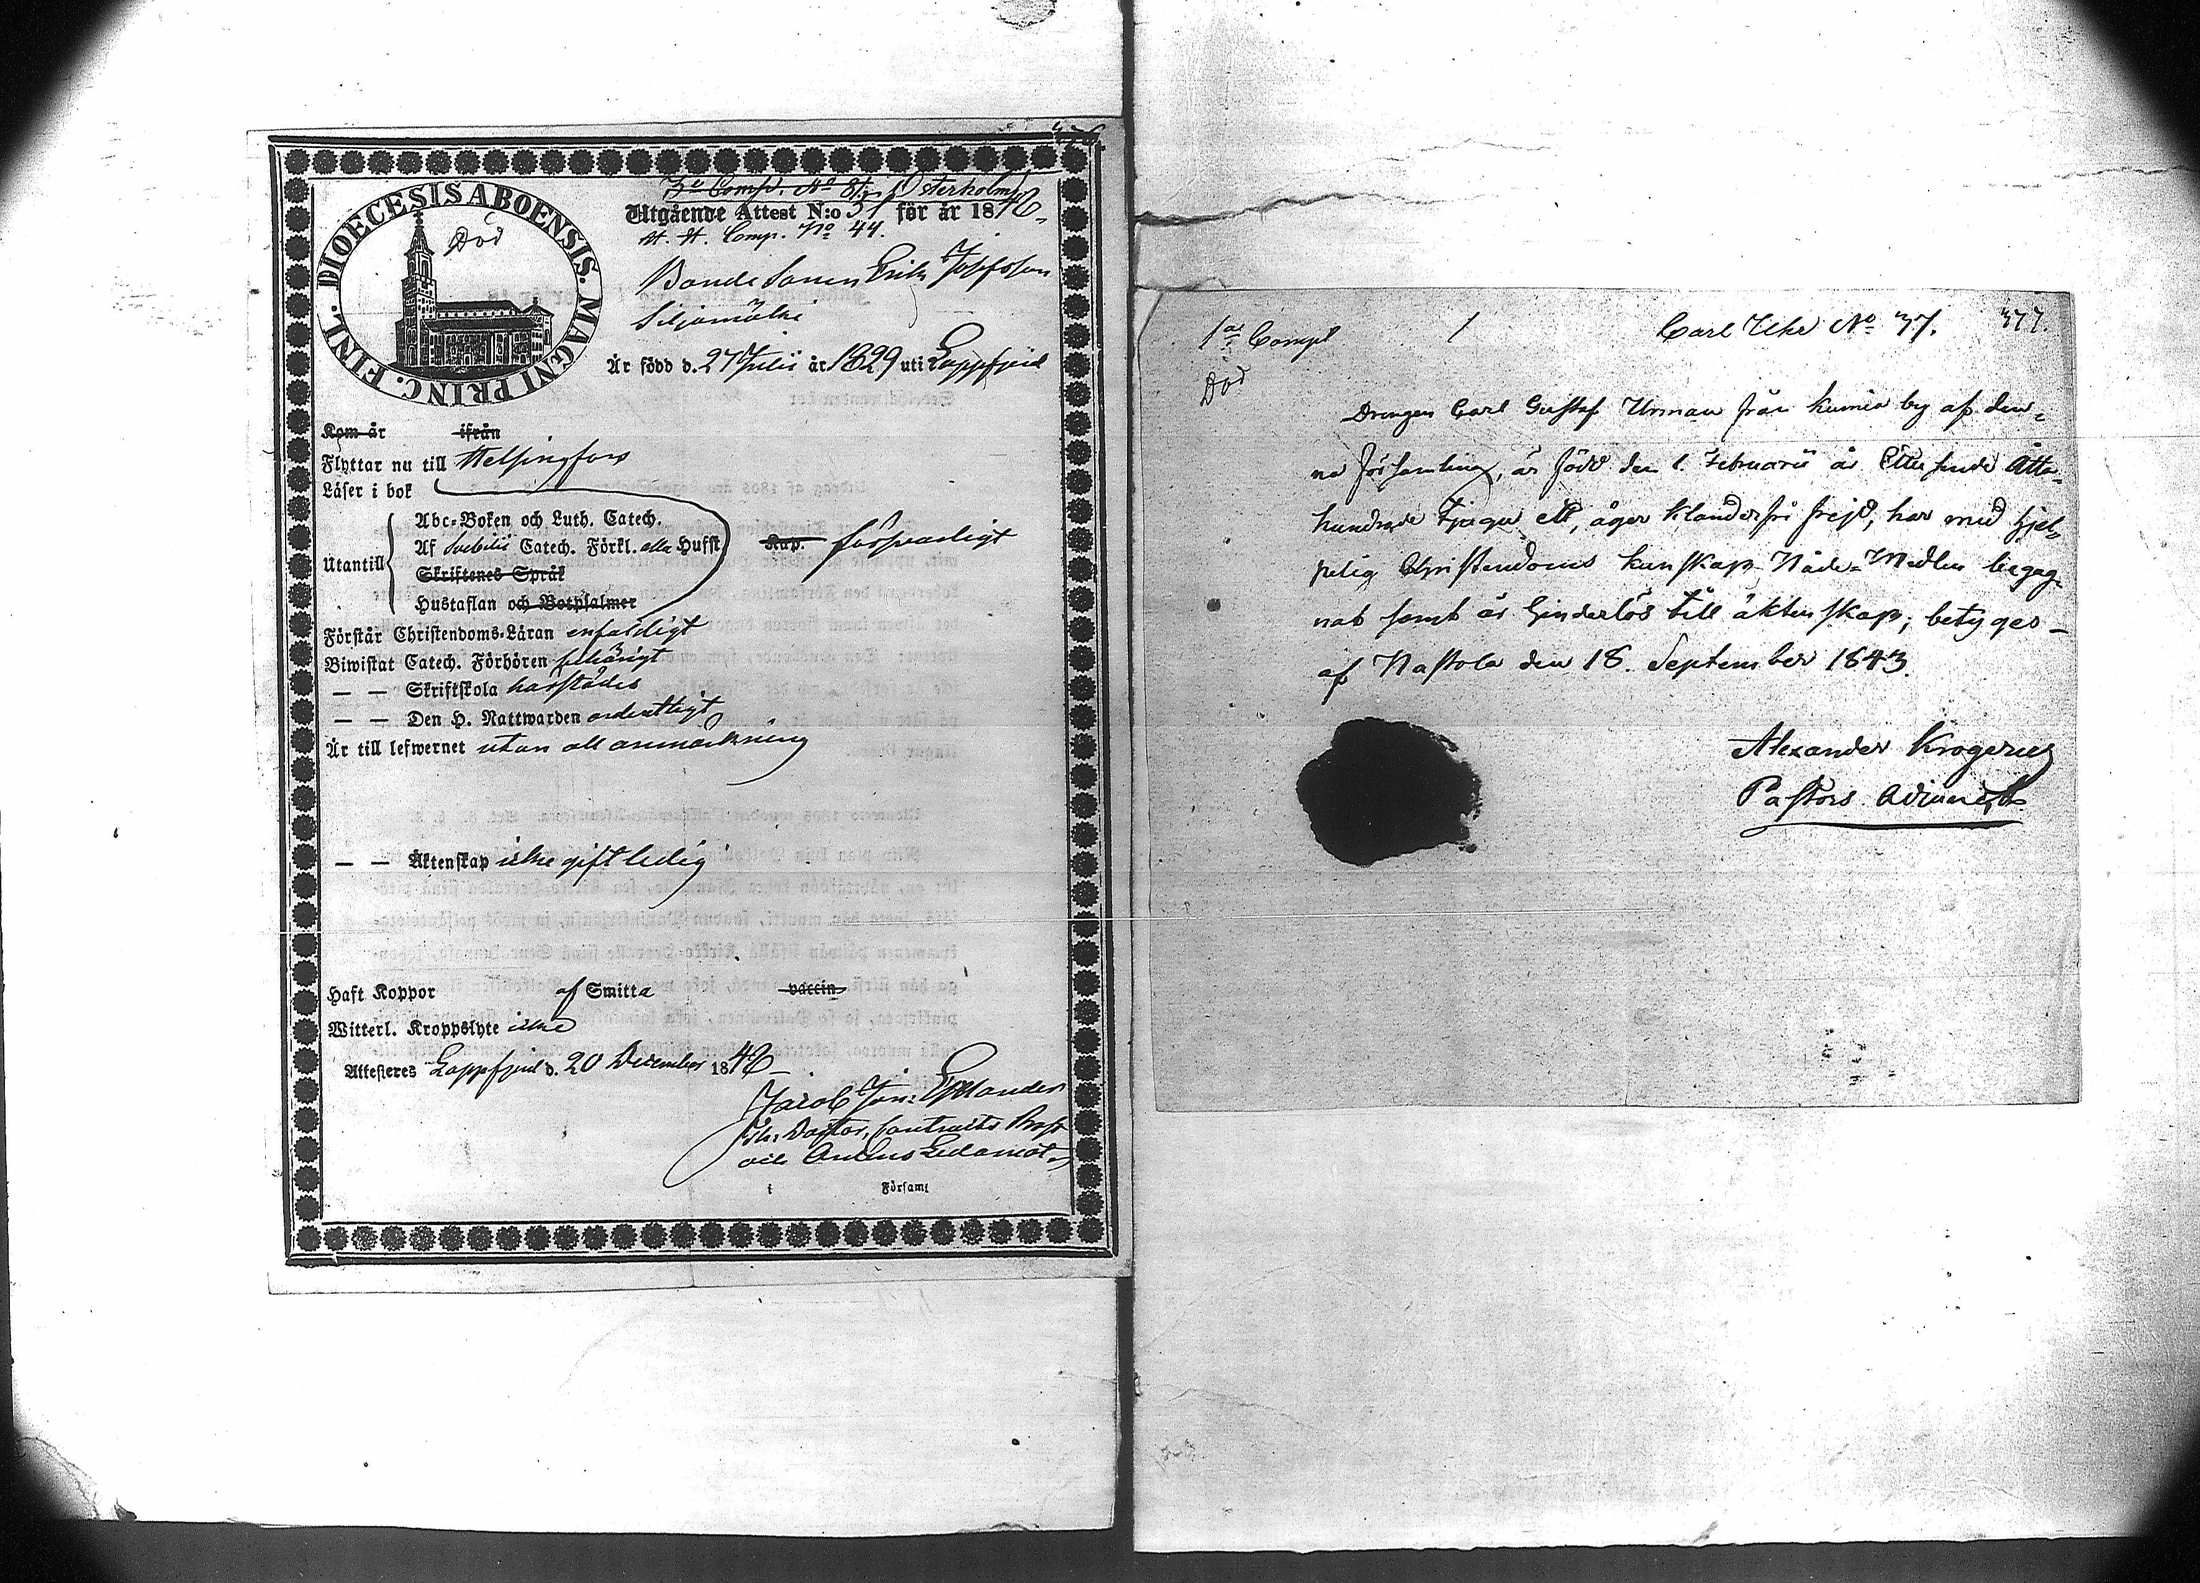 376.
DIOECESIS ABOENSIS. MAGNI PRINC. FINL.
Död
3e Comp. No 81 Österholm
Utgående Attest N:o 51 för år 1848
A. A. Comp. No 44.
Bondesonen Erik Josefsson
Siljamäki
Är född d. 27 Julii år 1829 uti Lappfjerd
Kom år ifrån
Flyttar nu till Helsingfors
Läser i bok
Utantill
Abc-Boken och Luth. Catech.
Af Svebilii Catech. Förkl. eller Hufst.
Kap. försvarligt
Skriftenes Språk
Hustaflan och Botpsalmer
Förstår Christendoms-Läran enfaldigt
Biwistat Catech. Förhören behörigt
— — Skriftskola härstädes
— — Den H. Nattwarden ordentligt
Är till lefwernet utan all anmärkning
— — Äktenskap icke gift ledig
Haft Koppor af Smitta vaccin
Witterl. Kroppslyte icke
Attesteras Lappfjerd d. 20 December 1848
Jacob Jon:
Doctor, Contracts Prost
och Ledamot
i Församl
1a Comp 1 Carl Uhr No 37. 377.
Död
Drengen Carl Gustaf Urman från Kumia by af den-
na församling, är född den 1. Februarii år Ettusende Åtta-
hundrade Tjugu ett, äger klanderfri frejd, har med hjel-
pelig Christendoms kunskap Nåde-Medlen begag-
nat samt är hinderlös till äktenskap; betyges
af Nastola den 18. September 1843.
Alexander Krogerus
Pastors Adjunct